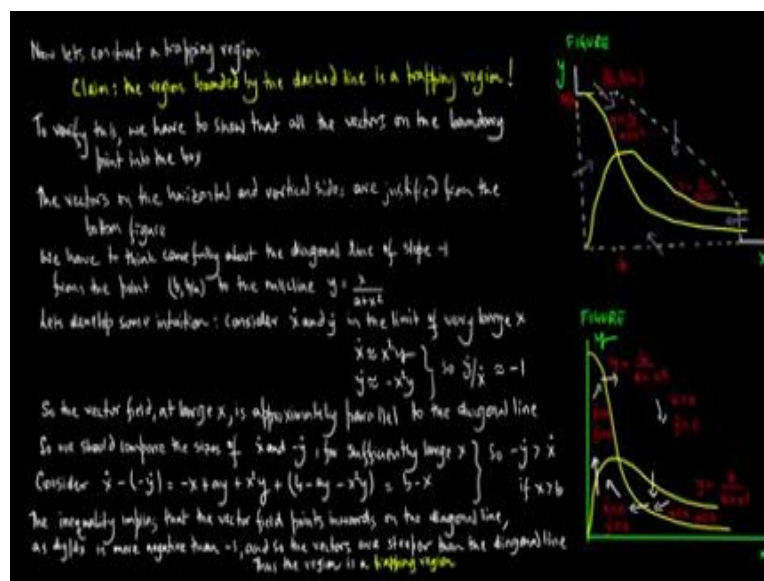 Now lets construct a trapping region
Claim: the region bounded by the dashed line is a trapping region!
To verify this, we have to show that all the vectors on the boundary
point into the box
The vectors on the horizontal and vertical sides are justified from the
bottom figure
We have to think carefully about the diagonal line of slope -1
from the point (b, b/a) to the nullcline y = x/(a+x²)
Lets develop some intuition: consider ẋ and ẏ in the limit of very large x
ẋ ≈ x²y
ẏ ≈ -x²y } so ẏ/ẋ ≈ -1
So the vector field, at large x, is approximately parallel to the diagonal line
So we should compare the sizes of ẋ and -ẏ, for sufficiently large x
Consider ẋ - (-ẏ) = -x + ay + x²y + (b - ay - x²y) = b - x } so -ẏ > ẋ
if x > b
The inequality implies that the vector field points inwards on the diagonal line,
as dy/dx is more negative than -1, and so the vectors are steeper than the diagonal line
Thus the region is a trapping region
FIGURE
y
b
x
FIGURE
y
x